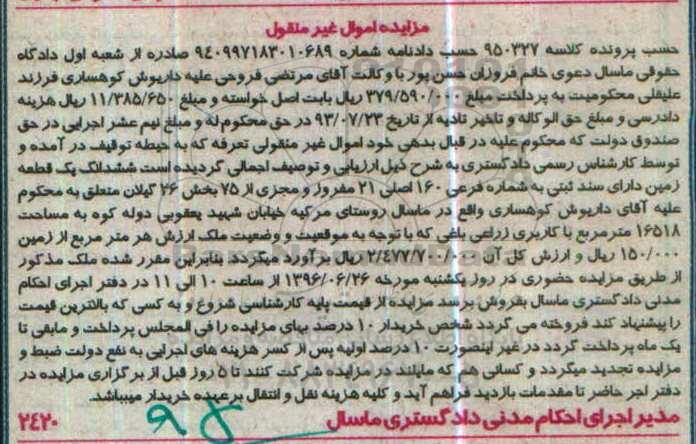 مزایده اموال غیر منقول
حسب پرونده کلاسه ۹۵۰۳۲۷ حسب دادنامه شماره ۹۴۰۹۹۷۱۸۳۰۱۰۶۸۹ صادره از شعبه اول دادگاه
حقوقی ماسال دعوی خانم فروزان حسن پور با وکالت آقای مرتضی فروحی علیه داریوش کوهساری فرزند
علیقلی محکومیت به پرداخت مبلغ ۳۷۹/۵۹۰/۰۰۰ ریال بابت اصل خواسته و مبلغ ۱۱/۳۸۵/۶۵۰ ریال هزینه
دادرسی و مبلغ حق الوکاله و تاخیر تادیه از تاریخ ۹۳/۰۷/۲۳ در حق محکوم له و مبلغ نیم عشر اجرایی در حق
صندوق دولت که محکوم علیه در قبال بدهی خود اموال غیر منقولی تعرفه که به حیطه توقیف در آمده و
توسط کارشناس رسمی دادگستری به شرح ذیل ارزیابی و توصیف اجمالی گردیده است ششدانگ یک قطعه
زمین دارای سند ثبتی به شماره فرعی ۱۶۰ اصلی ۲۱ مفروز و مجزی از ۷۵ بخش ۲۶ گیلان متعلق به محکوم
علیه آقای داریوش کوهساری واقع در ماسال روستای مرکیه خیابان شهید یعقوبی دوله کوه به مساحت
۱۶۵۱۸ مترمربع با کاربری زراعی باغی که با توجه به موقعیت و وضعیت ملک ارزش هر متر مربع از زمین
۱۵۰/۰۰۰ ریال و ارزش کل آن ۲/۴۷۷/۷۰۰/۰۰۰ ریال برآورد میگردد بنابراین مقرر شده ملک مذکور
از طریق مزایده حضوری در روز یکشنبه مورخه ۱۳۹۶/۰۶/۲۶ از ساعت ۱۰ الی ۱۱ در دفتر اجرای احکام
مدنی دادگستری ماسال بفروش برسد مزایده از قیمت پایه کارشناسی شروع و به کسی که بالاترین قیمت
را پیشنهاد کند فروخته می گردد شخص خریدار ۱۰ درصد بهای مزایده را فی المجلس پرداخت و مابقی تا
یک ماه پرداخت گردد در غیر اینصورت ۱۰ درصد اولیه پس از کسر هزینه های اجرایی به نفع دولت ضبط و
مزایده تجدید میگردد و کسانی هم که مایلند در مزایده شرکت کنند تا ۵ روز قبل از برگزاری مزایده در
دفتر اجر حاضر تا مقدمات بازدید فراهم آید و کلیه هزینه نقل و انتقال برعهده خریدار میباشد.
مدیر اجرای احکام مدنی دادگستری ماسال ۲۴۲۰